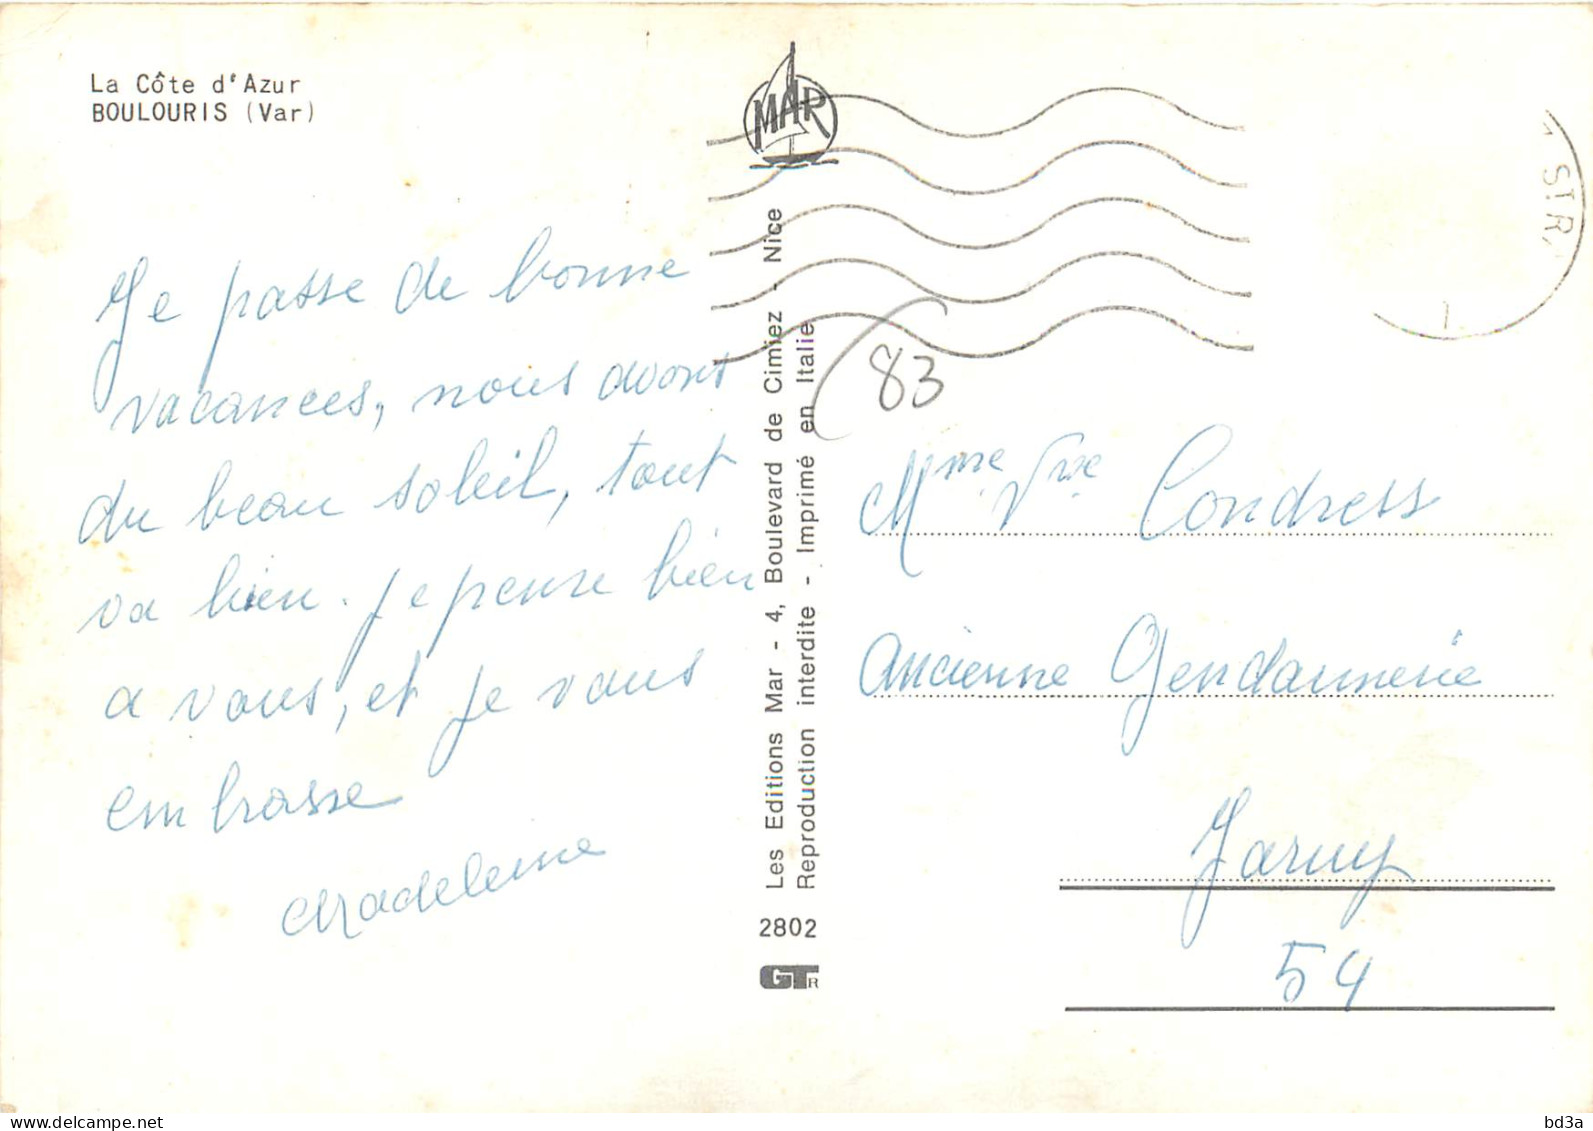 La Côte d'Azur
BOULOURIS (Var)
Je passe de bonne
vacances, nous avons
du beau soleil, tout
va bien. Je pense bien
a vous, et je vous
embrasse
Madeleine
MAR
Les Editions Mar - 4, Boulevard de Cimiez - Nice
Reproduction interdite - Imprimé en Italie
2802
GTR
83
ST.R.
Mme Vve Condress
Ancienne Gendarmerie
Jarny
54
delcampe.net
bd3a